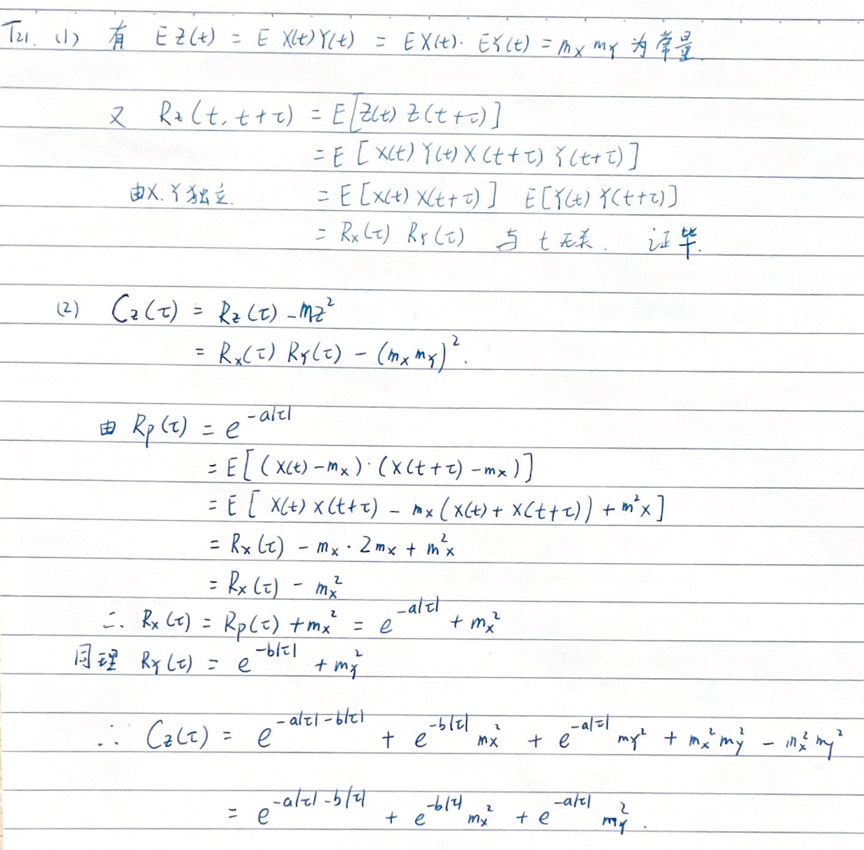 T21. (1) 有 E Z(t) = E X(t)Y(t) = E X(t)· E Y(t) = m_X m_Y 为常量
又 R_Z(t, t+τ) = E[Z(t) Z(t+τ)]
= E [ X(t) Y(t) X(t+τ) Y(t+τ)]
由X.Y独立. = E[X(t) X(t+τ)] E[Y(t) Y(t+τ)]
= R_X(τ) R_Y(τ) 与 t 无关. 证毕.
(2) C_Z(τ) = R_Z(τ) - m_Z²
= R_X(τ) R_Y(τ) - (m_X m_Y)².
由 R_p(τ) = e^{-a|τ|}
= E[(X(t)-m_X)·(X(t+τ)-m_X)]
= E[ X(t) X(t+τ) - m_X(X(t)+X(t+τ)) + m²_X]
= R_X(τ) - m_X · 2m_X + m²_X
= R_X(τ) - m_X²
∴ R_X(τ) = R_p(τ) + m_X² = e^{-a|τ|} + m_X²
同理 R_Y(τ) = e^{-b|τ|} + m_Y²
∴ C_Z(τ) = e^{-a|τ|-b|τ|} + e^{-b|τ|} m_X² + e^{-a|τ|} m_Y² + m_X² m_Y² - m_X² m_Y²
= e^{-a|τ|-b|τ|} + e^{-b|τ|} m_X² + e^{-a|τ|} m_Y².